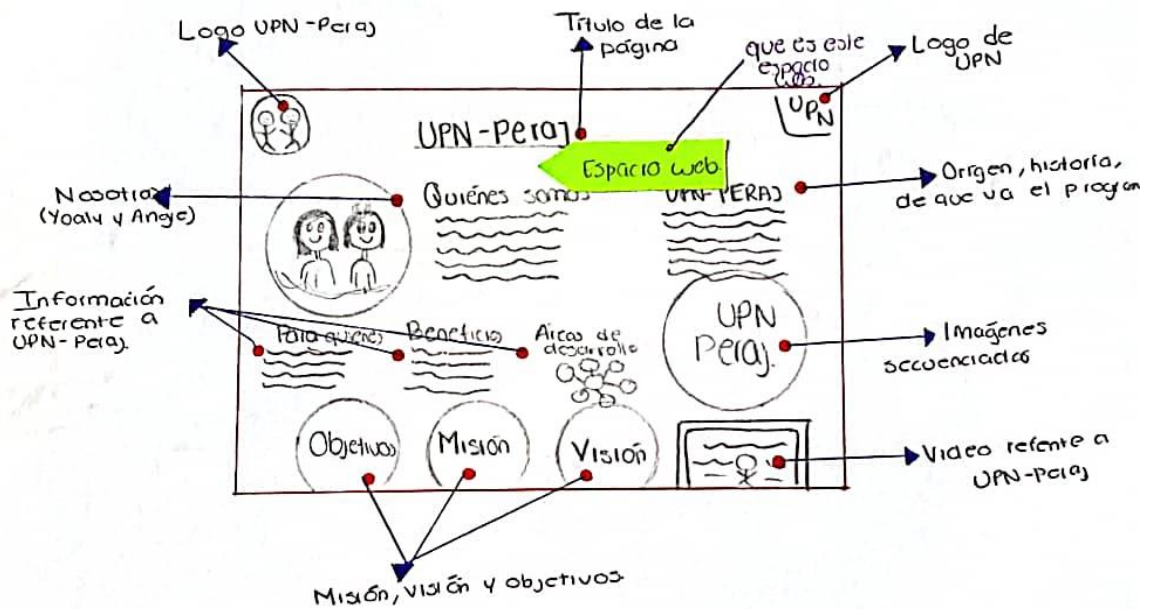 Logo UPN-Peraj
Título de la
página
que es este
espacio
web.
Logo de
UPN
UPN
UPN-Peraj
Espacio web.
Nosotras
(Yoaly y Angie)
Quiénes somos
UPN-PERAJ
Origen, historia,
de que va el program
Información
referente a
UPN-Peraj.
Para quienes
Beneficios
Áreas de
desarrollo
UPN
Peraj.
Imagénes
secuenciadas
Objetivos
Misión
Visión
Video refente a
UPN-Peraj
Misión, visión y objetivos